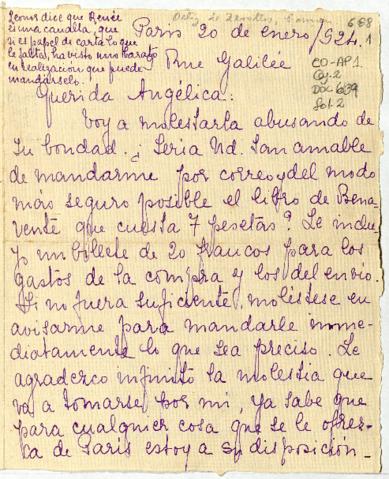 Leonor dice que Renée
es una candita, que
si el papel de carta lo que
le falta, ha visto uno barato
en realización que puede
mandárselo.
668
1
Paris 20 de enero/924.
Rue Galilée
CO-AP1.
Cj. 2
DOC 639
Fol. 2
Querida Angélica:
Voy a molestarla abusando de
su bondad. ¿Seria Ud. tan amable
de mandarme por correo y del modo
más seguro posible el libro de Bena
vente que cuesta 7 pesetas? Le inclu
yo un billete de 20 francos para los
gastos de la compra y los del envio.
Si no fuera suficiente moléstese en
avisarme para mandarle inme-
diatamente lo que sea preciso. Le
agradezco infinito la molestia que
va a tomarse por mi, ya sabe que
para cualquier cosa que se le ofrez-
ca de Paris estoy a su disposición.-